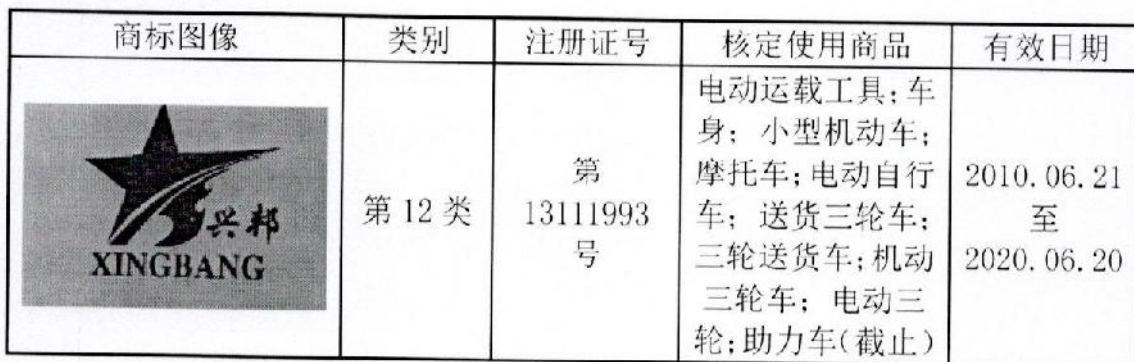 商标图像 类别 注册证号 核定使用商品 有效日期
兴邦
XINGBANG
第 12 类
第
13111993
号
电动运载工具;车
身; 小型机动车;
摩托车;电动自行
车; 送货三轮车;
三轮送货车;机动
三轮车; 电动三
轮;助力车(截止)
2010.06.21
至
2020.06.20